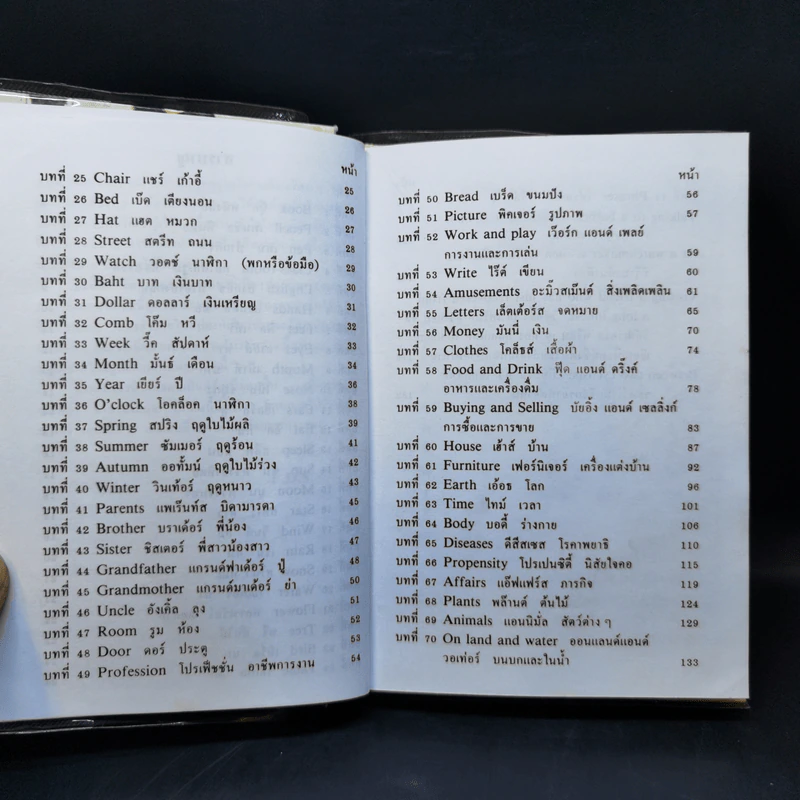 หน้า
บทที่ 25 Chair แชร์ เก้าอี้ 25
บทที่ 26 Bed เบ็ด เตียงนอน 26
บทที่ 27 Hat แฮต หมวก 27
บทที่ 28 Street สตรีท ถนน 28
บทที่ 29 Watch วอตช์ นาฬิกา (พกหรือข้อมือ) 29
บทที่ 30 Baht บาท เงินบาท 30
บทที่ 31 Dollar ดอลลาร์ เงินเหรียญ 31
บทที่ 32 Comb โค๊ม หวี 32
บทที่ 33 Week วี๊ค สัปดาห์ 33
บทที่ 34 Month มั้นธ์ เดือน 34
บทที่ 35 Year เยียร์ ปี 36
บทที่ 36 O'clock โอคล็อค นาฬิกา 38
บทที่ 37 Spring สปริง ฤดูใบไม้ผลิ 39
บทที่ 38 Summer ซัมเมอร์ ฤดูร้อน 41
บทที่ 39 Autumn ออทั้มน์ ฤดูใบไม้ร่วง 42
บทที่ 40 Winter วินเท้อร์ ฤดูหนาว 43
บทที่ 41 Parents แพเร็นท์ส บิดามารดา 45
บทที่ 42 Brother บราเด้อร์ พี่น้อง 47
บทที่ 43 Sister ซิสเตอร์ พี่สาวน้องสาว 48
บทที่ 44 Grandfather แกรนด์ฟาเด้อร์ ปู่ 49
บทที่ 45 Grandmother แกรนด์มาเด้อร์ ย่า 50
บทที่ 46 Uncle อังเคิ้ล ลุง 51
บทที่ 47 Room รูม ห้อง 52
บทที่ 48 Door ดอร์ ประตู 53
บทที่ 49 Profession โปรเฟ็ชชั่น อาชีพการงาน 54
หน้า
บทที่ 50 Bread เบร็ด ขนมปัง 56
บทที่ 51 Picture พิคเจอร์ รูปภาพ 57
บทที่ 52 Work and play เวือร์ก แอนด์ เพลย์
การงานและการเล่น 59
บทที่ 53 Write ไร๊ต์ เขียน 60
บทที่ 54 Amusements อะมิ้วสเม็นต์ สิ่งเพลิดเพลิน 61
บทที่ 55 Letters เล็ตเต้อร์ส จดหมาย 65
บทที่ 56 Money มันนี่ เงิน 70
บทที่ 57 Clothes โคล็ธส์ เสื้อผ้า 74
บทที่ 58 Food and Drink ฟู๊ด แอนด์ ดริ๊งค์
อาหารและเครื่องดื่ม 78
บทที่ 59 Buying and Selling บัยอิ้ง แอนด์ เซลลิ่งก์
การซื้อและการขาย 83
บทที่ 60 House เฮ้าส์ บ้าน 87
บทที่ 61 Furniture เฟอร์นิเจอร์ เครื่องแต่งบ้าน 92
บทที่ 62 Earth เอ้อธ โลก 96
บทที่ 63 Time ไทม์ เวลา 101
บทที่ 64 Body บอดี้ ร่างกาย 106
บทที่ 65 Diseases ดีสีสเซส โรคาพยาธิ 110
บทที่ 66 Propensity โปรเปนซิตี้ นิสัยใจคอ 115
บทที่ 67 Affairs แอ๊ฟแฟร์ส ภารกิจ 119
บทที่ 68 Plants พล๊านต์ ต้นไม้ 124
บทที่ 69 Animals แอนนิมั่ล สัตว์ต่าง ๆ 129
บทที่ 70 On land and water ออนแลนด์แอนด์
วอเท่อร์ บนบกและในน้ำ 133